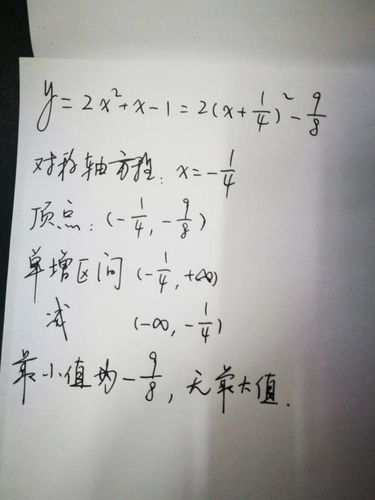 y=2x²+x-1=2(x+1/4)²-9/8
对称轴方程: x=-1/4
顶点: (-1/4, -9/8)
单增区间 (-1/4, +∞)
减 (-∞, -1/4)
最小值为-9/8, 无最大值.